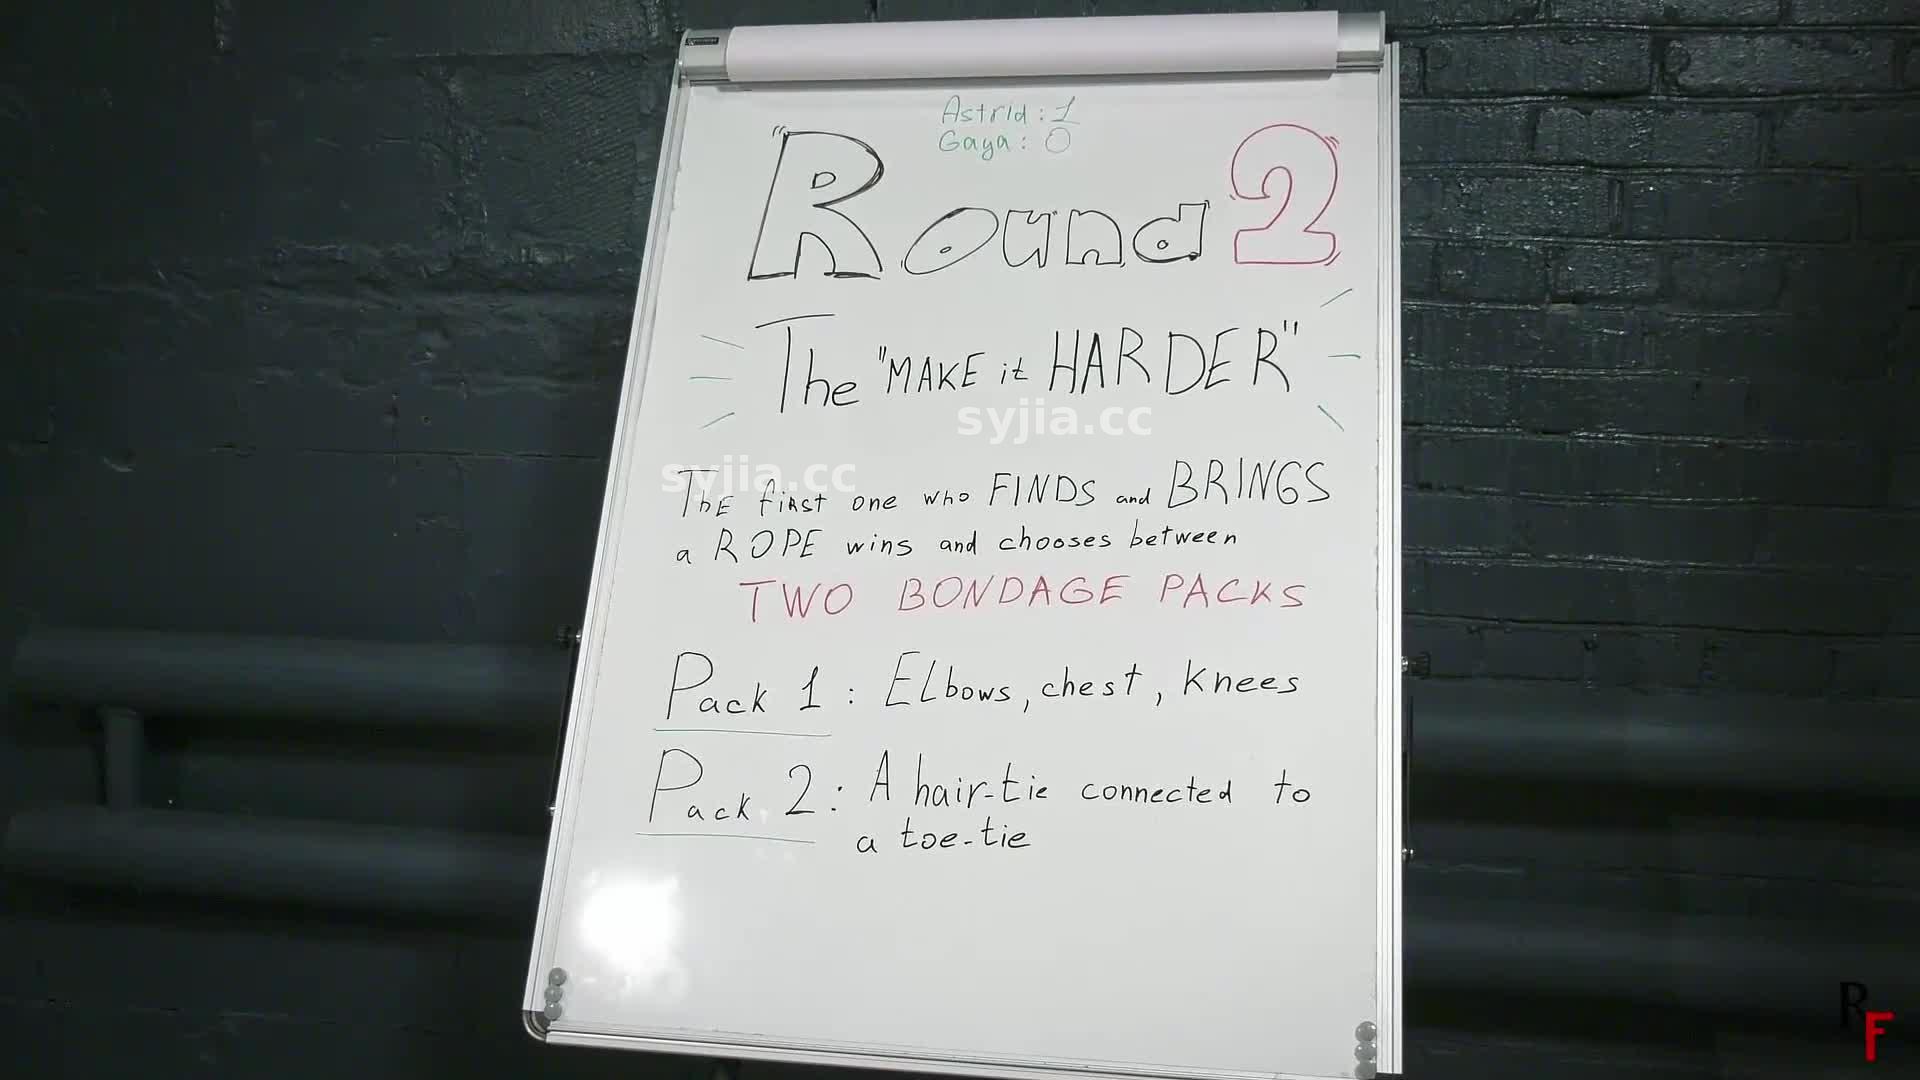 Astrid: 1
Gaya: 0
Round 2
The "MAKE it HARDER"
syjia.cc
syjia.cc
ThE first one who FINDS and BRINGS
a ROPE wins and chooses between
TWO BONDAGE PACKS
Pack 1: Elbows, chest, knees
Pack 2: A hair-tie connected to
a toe-tie
RF